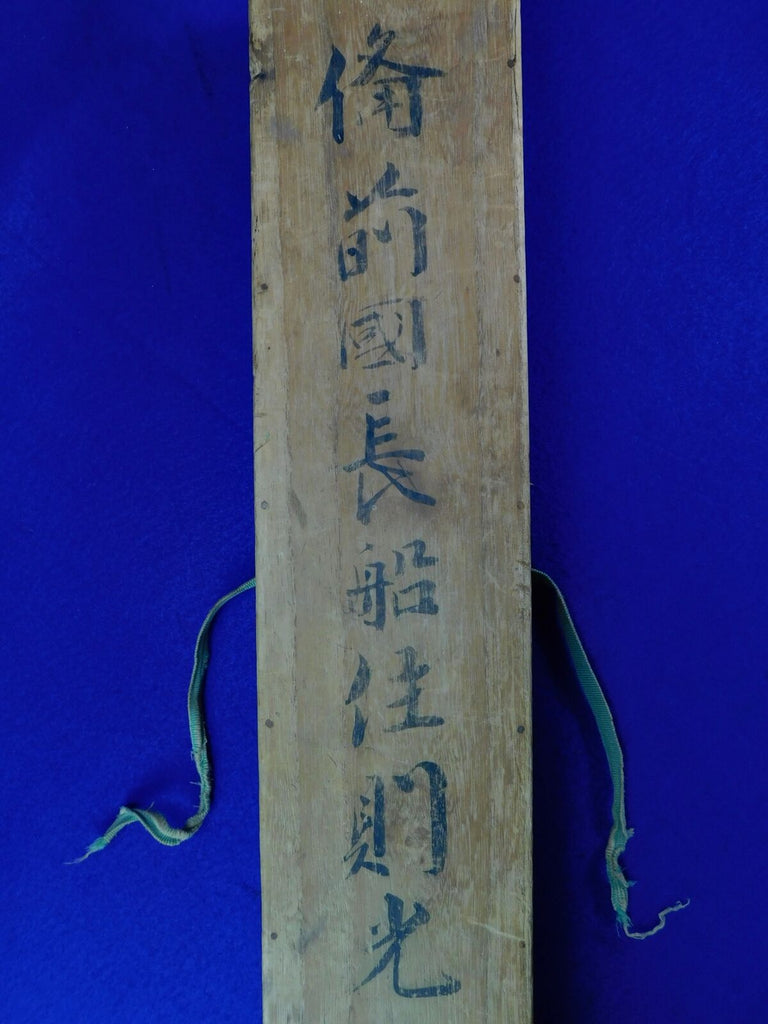 俻前國長船住則光